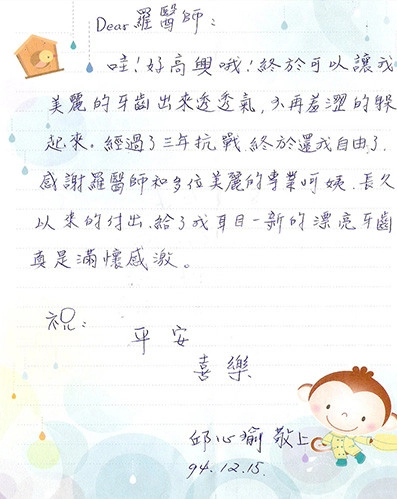 Dear 羅醫師:
哇!好高興哦!終於可以讓我
美麗的牙齒出來透透氣,不再羞澀的躲
起來。經過了三年抗戰,終於還我自由了.
感謝羅醫師和多位美麗的專業阿姨.長久
以來的付出.給了我耳目一新的漂亮牙齒
真是滿懷感激。
祝:
平安
喜樂
邱心瑜 敬上
94.12.15.